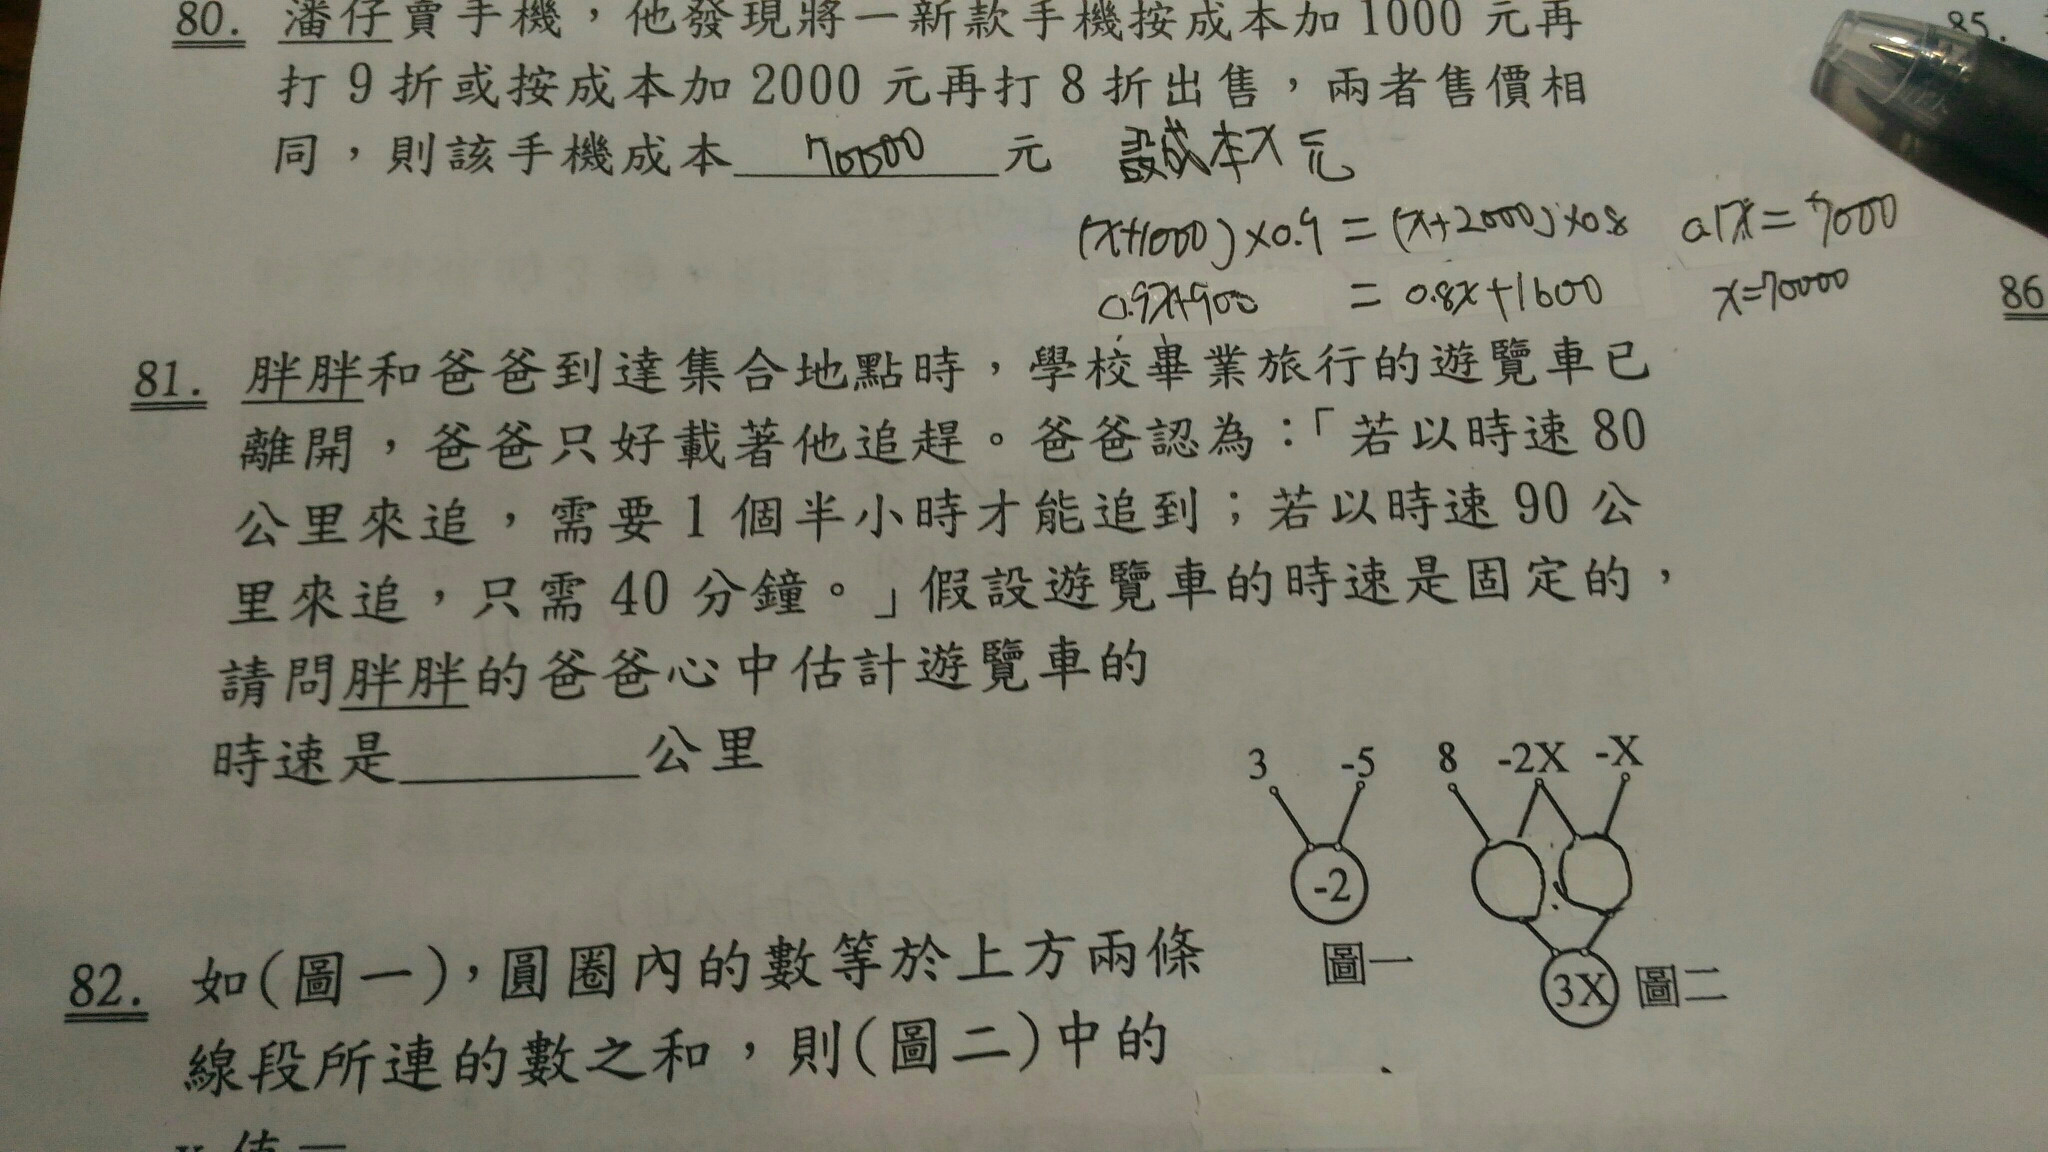 80. 潘仔賣手機，他發現將一新款手機按成本加1000元再
打9折或按成本加2000元再打8折出售，兩者售價相
同，則該手機成本 70000 元 設成本x元
(x+1000)×0.9=(x+2000)×0.8 0.1x=7000
0.9x+900 = 0.8x+1600 x=70000
81. 胖胖和爸爸到達集合地點時，學校畢業旅行的遊覽車已
離開，爸爸只好載著他追趕。爸爸認為：「若以時速80
公里來追，需要1個半小時才能追到；若以時速90公
里來追，只需40分鐘。」假設遊覽車的時速是固定的，
請問胖胖的爸爸心中估計遊覽車的
時速是________公里
3 -5 8 -2X -X
-2
圖一
3X 圖二
82. 如(圖一)，圓圈內的數等於上方兩條
線段所連的數之和，則(圖二)中的
85.
86